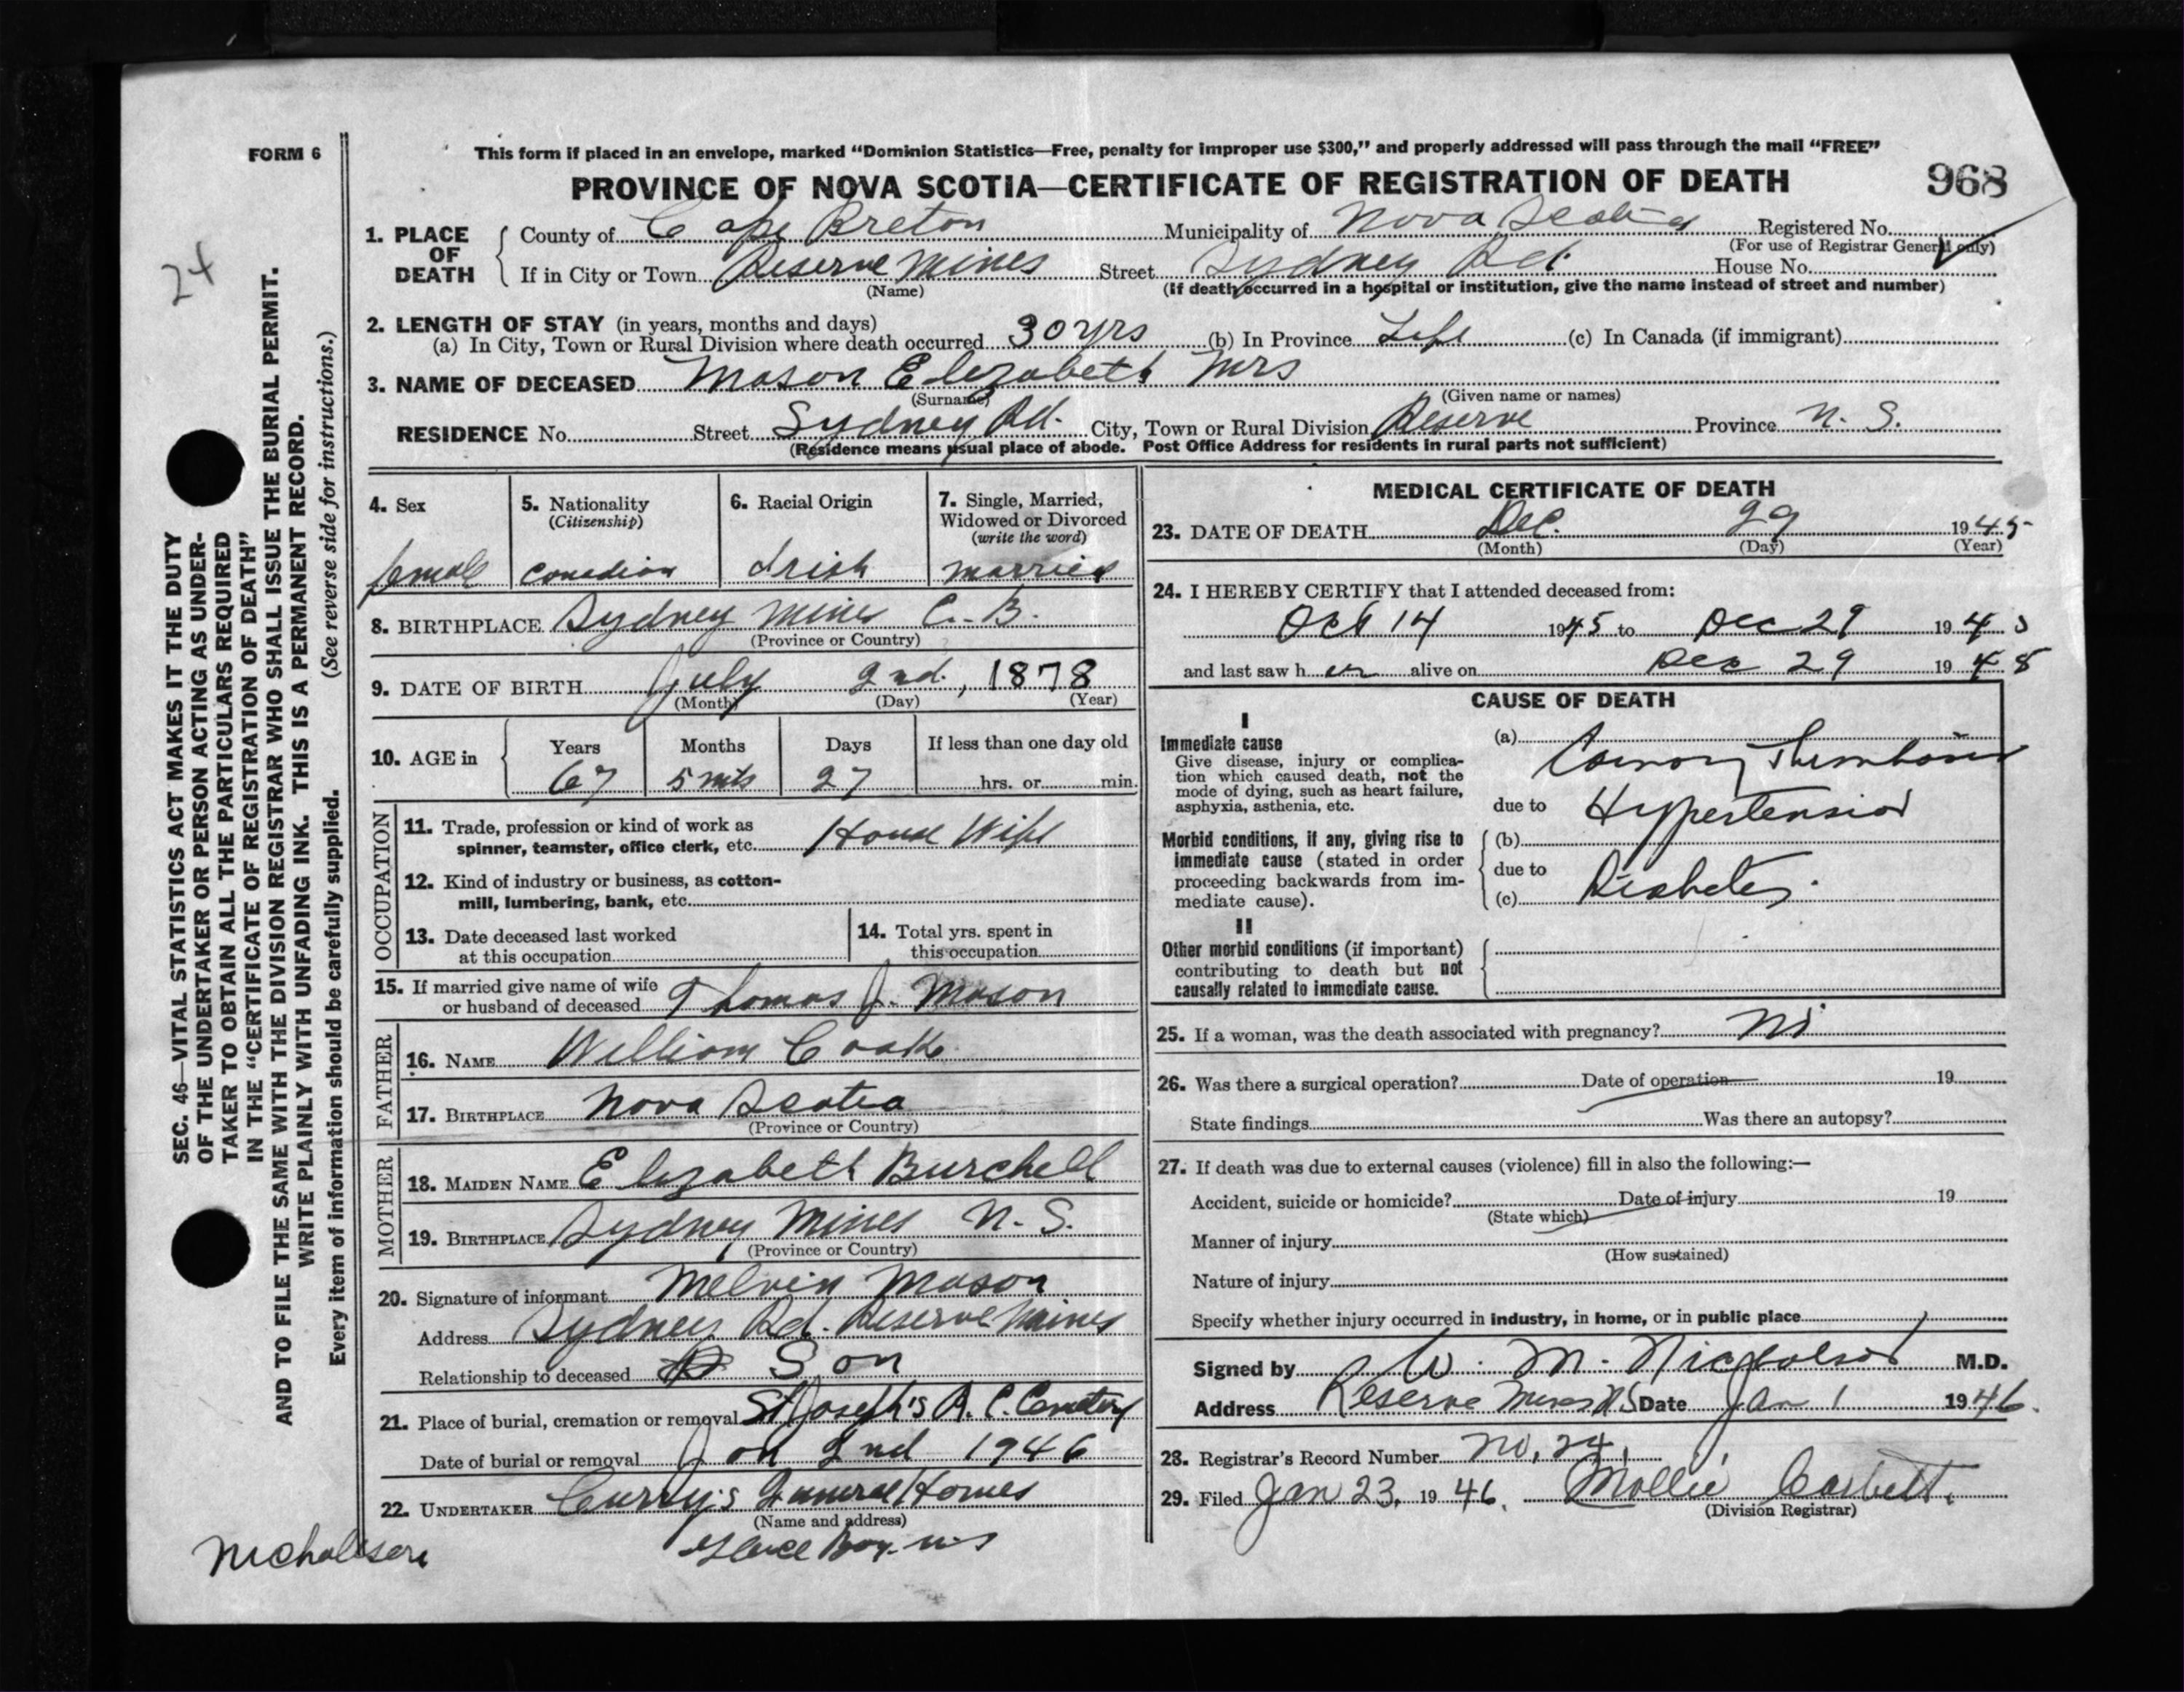 FORM 6
This form if placed in an envelope, marked “Dominion Statistics—Free, penalty for improper use $300,” and properly addressed will pass through the mail “FREE”
PROVINCE OF NOVA SCOTIA—CERTIFICATE OF REGISTRATION OF DEATH
968
24
1. PLACE OF DEATH
County of Cape Breton Municipality of Nova Scotia Registered No.
(For use of Registrar General only)
If in City or Town Reserve Mines Street Sydney Rd. House No.
(Name) (If death occurred in a hospital or institution, give the name instead of street and number)
2. LENGTH OF STAY (in years, months and days)
(a) In City, Town or Rural Division where death occurred 30 yrs (b) In Province Life (c) In Canada (if immigrant)
3. NAME OF DECEASED Mason Elizabeth Mrs
(Surname) (Given name or names)
RESIDENCE No. Street Sydney Rd. City, Town or Rural Division Reserve Province N. S.
(Residence means usual place of abode. Post Office Address for residents in rural parts not sufficient)
4. Sex
female
5. Nationality
(Citizenship)
Canadian
6. Racial Origin
Irish
7. Single, Married,
Widowed or Divorced
(write the word)
married
8. BIRTHPLACE Sydney Mines C. B.
(Province or Country)
9. DATE OF BIRTH July 2nd., 1878
(Month) (Day) (Year)
10. AGE in
Years Months Days If less than one day old
67 5 mts 27 hrs. or min.
OCCUPATION
11. Trade, profession or kind of work as
spinner, teamster, office clerk, etc. House Wife
12. Kind of industry or business, as cotton-
mill, lumbering, bank, etc.
13. Date deceased last worked
at this occupation
14. Total yrs. spent in
this occupation
15. If married give name of wife
or husband of deceased Thomas J. Mason
FATHER
16. NAME William Cooke
17. BIRTHPLACE Nova Scotia
(Province or Country)
MOTHER
18. MAIDEN NAME Elizabeth Burchell
19. BIRTHPLACE Sydney Mines N. S.
(Province or Country)
20. Signature of informant Melvin Mason
Address Sydney Rd. Reserve Mines
Relationship to deceased Son
21. Place of burial, cremation or removal St Joseph's R. C. Cemetery
Date of burial or removal Jan 2nd 1946
22. UNDERTAKER Curry's Funeral Homes
(Name and address)
Glace Bay. N S
Nicholson
MEDICAL CERTIFICATE OF DEATH
23. DATE OF DEATH Dec. 29 1945
(Month) (Day) (Year)
24. I HEREBY CERTIFY that I attended deceased from:
Oct 14 1945 to Dec 29 1945
and last saw her alive on Dec 29 1945
CAUSE OF DEATH
I
Immediate cause
Give disease, injury or complica-
tion which caused death, not the
mode of dying, such as heart failure,
asphyxia, asthenia, etc.
(a) Coronary Thrombosis
due to Hypertension
Morbid conditions, if any, giving rise to
immediate cause (stated in order
proceeding backwards from im-
mediate cause).
(b)
due to
(c) Diabetes.
II
Other morbid conditions (if important)
contributing to death but not
causally related to immediate cause.
25. If a woman, was the death associated with pregnancy? No
26. Was there a surgical operation? Date of operation 19
State findings Was there an autopsy?
27. If death was due to external causes (violence) fill in also the following:—
Accident, suicide or homicide? Date of injury 19
(State which)
Manner of injury
(How sustained)
Nature of injury
Specify whether injury occurred in industry, in home, or in public place
Signed by W. M. Nicholson M.D.
Address Reserve Mines NS Date Jan 1 1946.
28. Registrar's Record Number No. 24.
29. Filed Jan 23, 1946. Mollie Corbett.
(Division Registrar)
SEC. 46—VITAL STATISTICS ACT MAKES IT THE DUTY
OF THE UNDERTAKER OR PERSON ACTING AS UNDER-
TAKER TO OBTAIN ALL THE PARTICULARS REQUIRED
IN THE “CERTIFICATE OF REGISTRATION OF DEATH”
AND TO FILE THE SAME WITH THE DIVISION REGISTRAR WHO SHALL ISSUE THE BURIAL PERMIT.
WRITE PLAINLY WITH UNFADING INK. THIS IS A PERMANENT RECORD.
Every item of information should be carefully supplied. (See reverse side for instructions.)